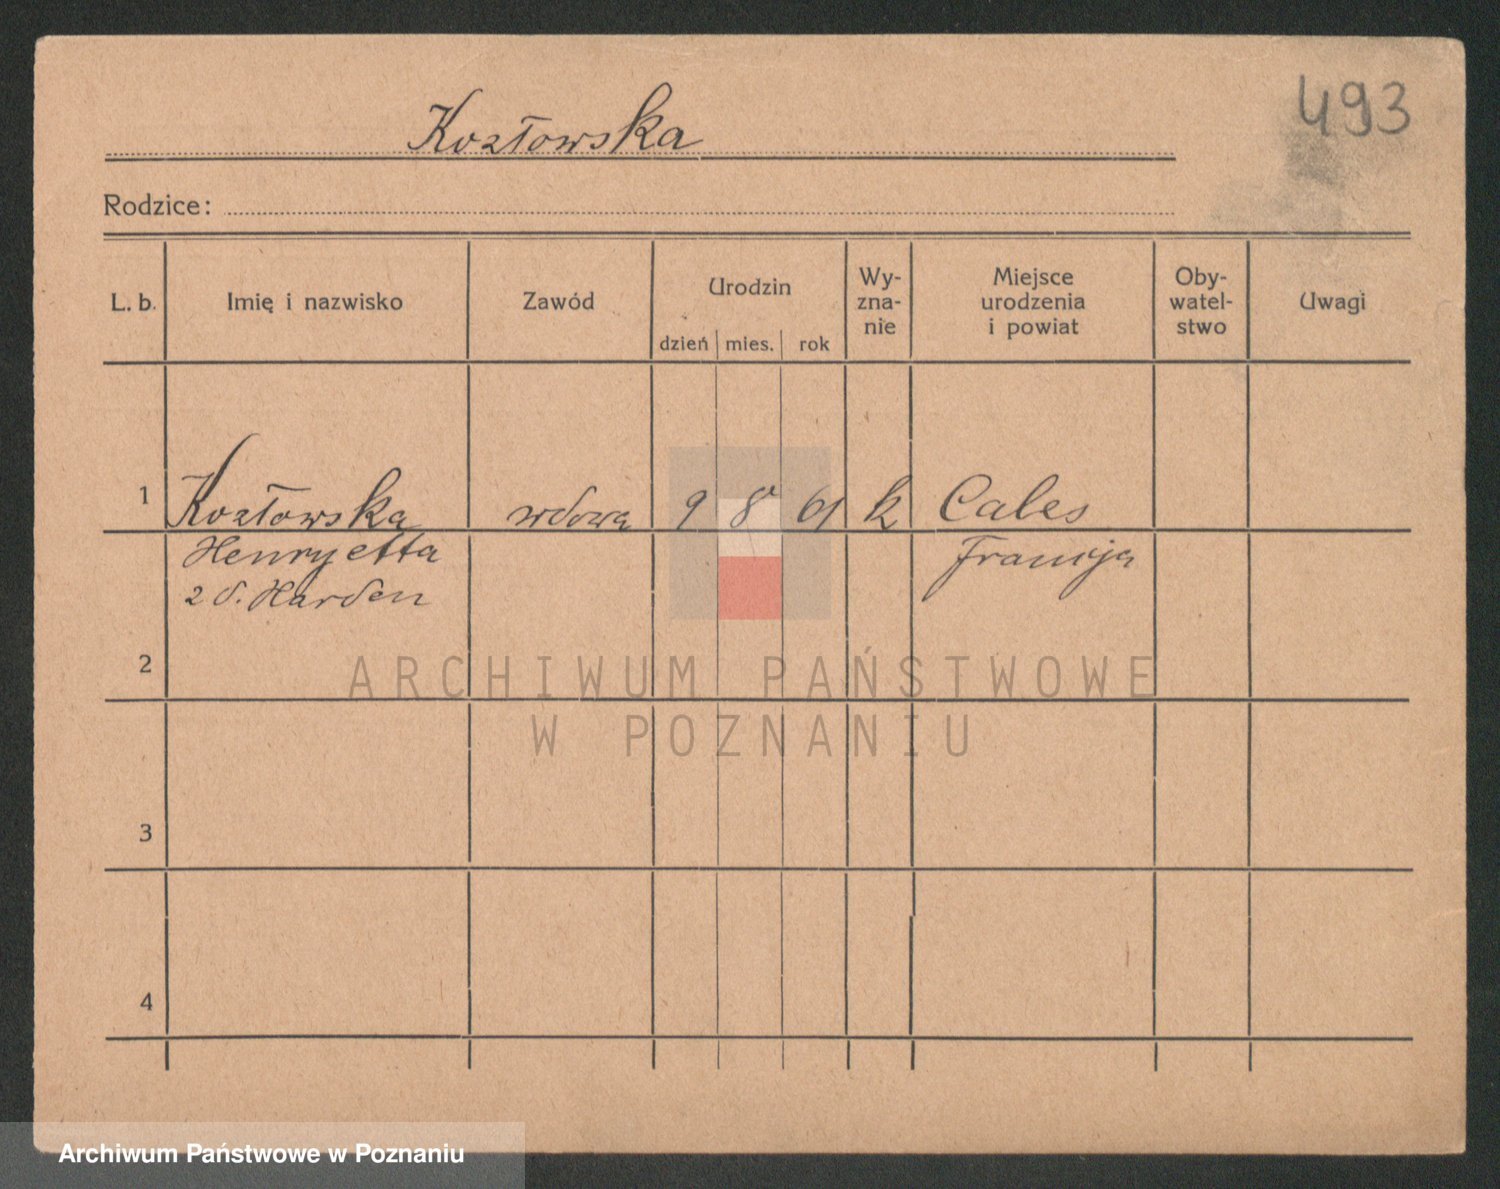 493
Kozłowska
Rodzice:
L. b. Imię i nazwisko Zawód Urodzin dzień mies. rok Wy-zna-nie Miejsce urodzenia i powiat Oby-watel-stwo Uwagi
1 Kozłowska wdowa 9 8 61 k Cales
Henryetta Francja
z d. Harden
2
ARCHIWUM PAŃSTWOWE
W POZNANIU
3
4
Archiwum Państwowe w Poznaniu